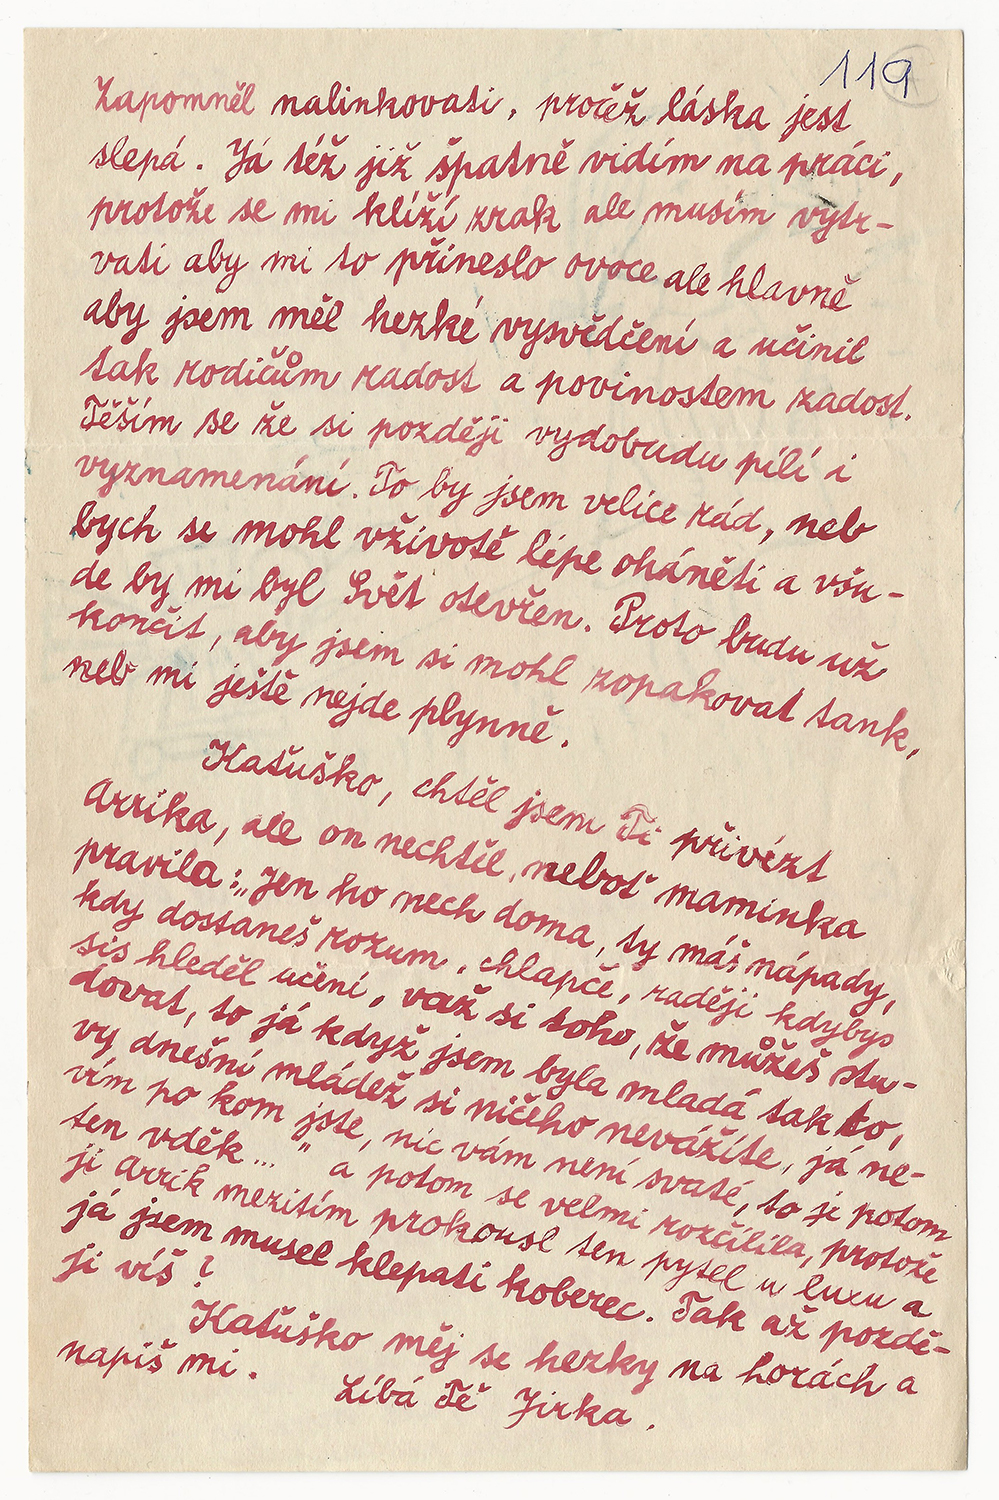 119
Zapomněl nalinkovati, pročež láska jest
slepá. Já též již špatně vidím na práci,
protože se mi klíží zrak ale musím vytr-
vati aby mi to přineslo ovoce ale hlavně
aby jsem měl hezké vysvědčení a učinil
tak rodičům radost a povinostem zadost.
Těším se že si později vydobudu pílí i
vyznamenání. To by jsem velice rád, neb
bych se mohl vživotě lépe oháněti a všu-
de by mi byl Svět otevřen. Proto budu už
končit, aby jsem si mohl zopakovat tank,
neb mi ještě nejde plynně.
Kaťuško, chtěl jsem Ti přivézt
Arrika, ale on nechtěl, neboť maminka
pravila: „Jen ho nech doma, ty máš nápady,
kdy dostaneš rozum, chlapče, raději kdybys
sis hleděl učení, važ si toho, že můžeš stu-
dovat, to já když jsem byla mladá tak to,
vy dnešní mládež si ničeho nevážíte, já ne-
vím po kom jste, nic vám není svaté, to je potom
ten vděk... " a potom se velmi rozčílila, protože
ji Arrik mezitím prokousl ten pytel u luxu a
já jsem musel klepati koberec. Tak až pozdě-
ji víš?
Kaťuško měj se hezky na horách a
napiš mi.
Líbá Tě Jirka.